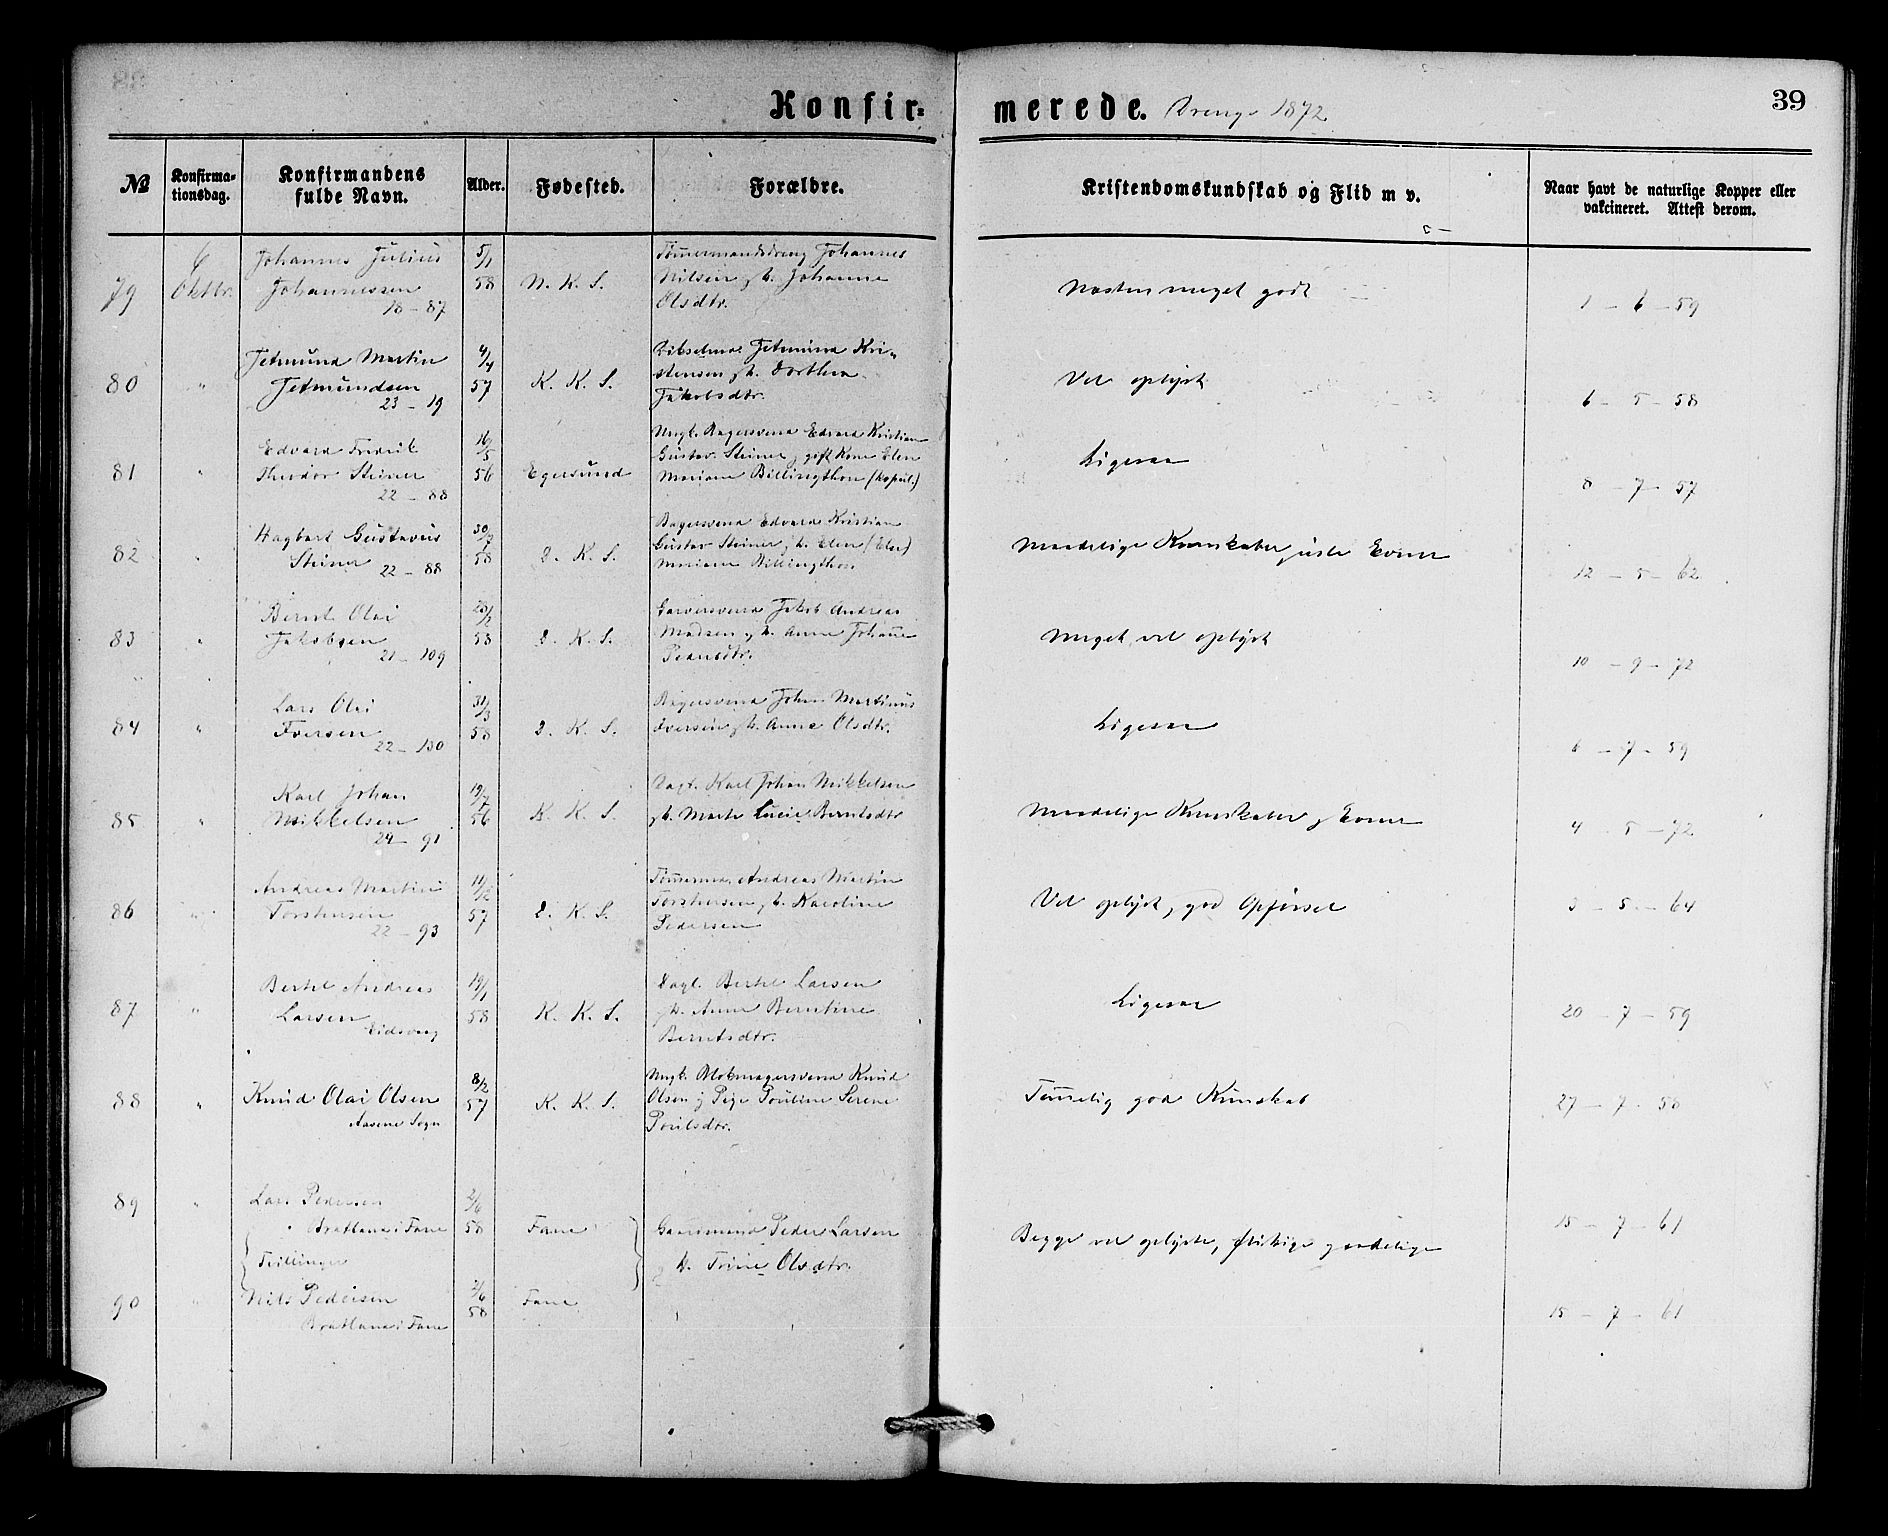 Konfir=
merede. Drenge 1872.
39
№
Konfirma-
tionsdag.
Konfirmandens
fulde Navn.
Alder.
Fødested.
Forældre.
Kristendomskundskab og Flid m v.
Naar havt de naturlige Kopper eller
vakcineret. Attest derom.
79
6
Oktbr.
Johannes Julius
Johannessen
18 – 87
5/1
58
N. K. S.
Johannes
Nilsen Johanne
Olsdtr.
Næsten meget godt
1 – 6 – 59
80
"
Jetmund Martin
Jetmundsen
23 – 19
4/4
57
K. K. S.
Jetmund Kri-
stensen Dorthea
Jakobsdtr.
Vel oplyst
6 – 5 – 58
81
"
Edvard Fredrik
Theodor Steiner
22 – 88
16/5
56
Egersund
Ungk. Bagersvend Edvard Kristian
Gustav Steiner, gift Kone Elen
Mariane Billingthon (kopul.)
Ligesaa
8 – 7 – 57
82
"
Hagbart Gustavus
Steiner
22 – 88
30/7
58
D. K. S.
Bagersvend Edvard Kristian
Gustav Steiner Elen (Else)
Mariane Billingthon
Maadelige Kunskaber, Evner
12 – 5 – 62
83
"
Bernt Olai
Jakobsen
21 – 109
58
D. K. S.
Garversvend Jakob Andreas
Madsen Anne Johanne
Pedersdtr.
Meget vel oplyst
10 – 9 – 72
84
"
Lars Olai
Iversen
22 – 130
31/3
58
D. K. S.
Bagersvend Johan Martinus
Iversen Anne Olsdtr.
Ligesaa
6 – 7 – 59
85
"
Karl Johan
Mikkelsen
24 – 91
19/7
56
K. K. S.
Dagl. Karl Johan Mikkelsen
Marte Lucie Berntsdtr
Maadelige Kunskaber og Evner
4 – 5 – 72
86
"
Andreas Martin
Torstensen
22 – 93
57
D. K. S.
Andreas Martin
Torstensen Karoline
Pedersen
Vel oplyst, god Opførsel
3 – 5 – 64
87
"
Bertel Andreas
Larsen
Eidsvaag
19/1
58
K. K. S.
Dagl. Bertel Larsen
Anne Berntine
Berntsdtr.
Ligesaa
20 – 7 – 59
88
"
Knud Olai Olsen
Aasene Sogn
8/2
57
K. K. S.
Ungk. Blokmagersvend Knud
Olsen Pige Pouline Serene
Poulsdtr.
Temmelig god Kunskab
27 – 7 – 58
89
"
Lars Pedersen
Bratland i Fane
2/6
58
Fane
Gaardmand Peder Larsen
Olsdtr.
Begge vel oplyste, flittige
15 – 7 – 61
Tvillinger
90
"
Nils Pedersen
Bratland i Fane
2/6
58
Fane
15 – 7 – 61